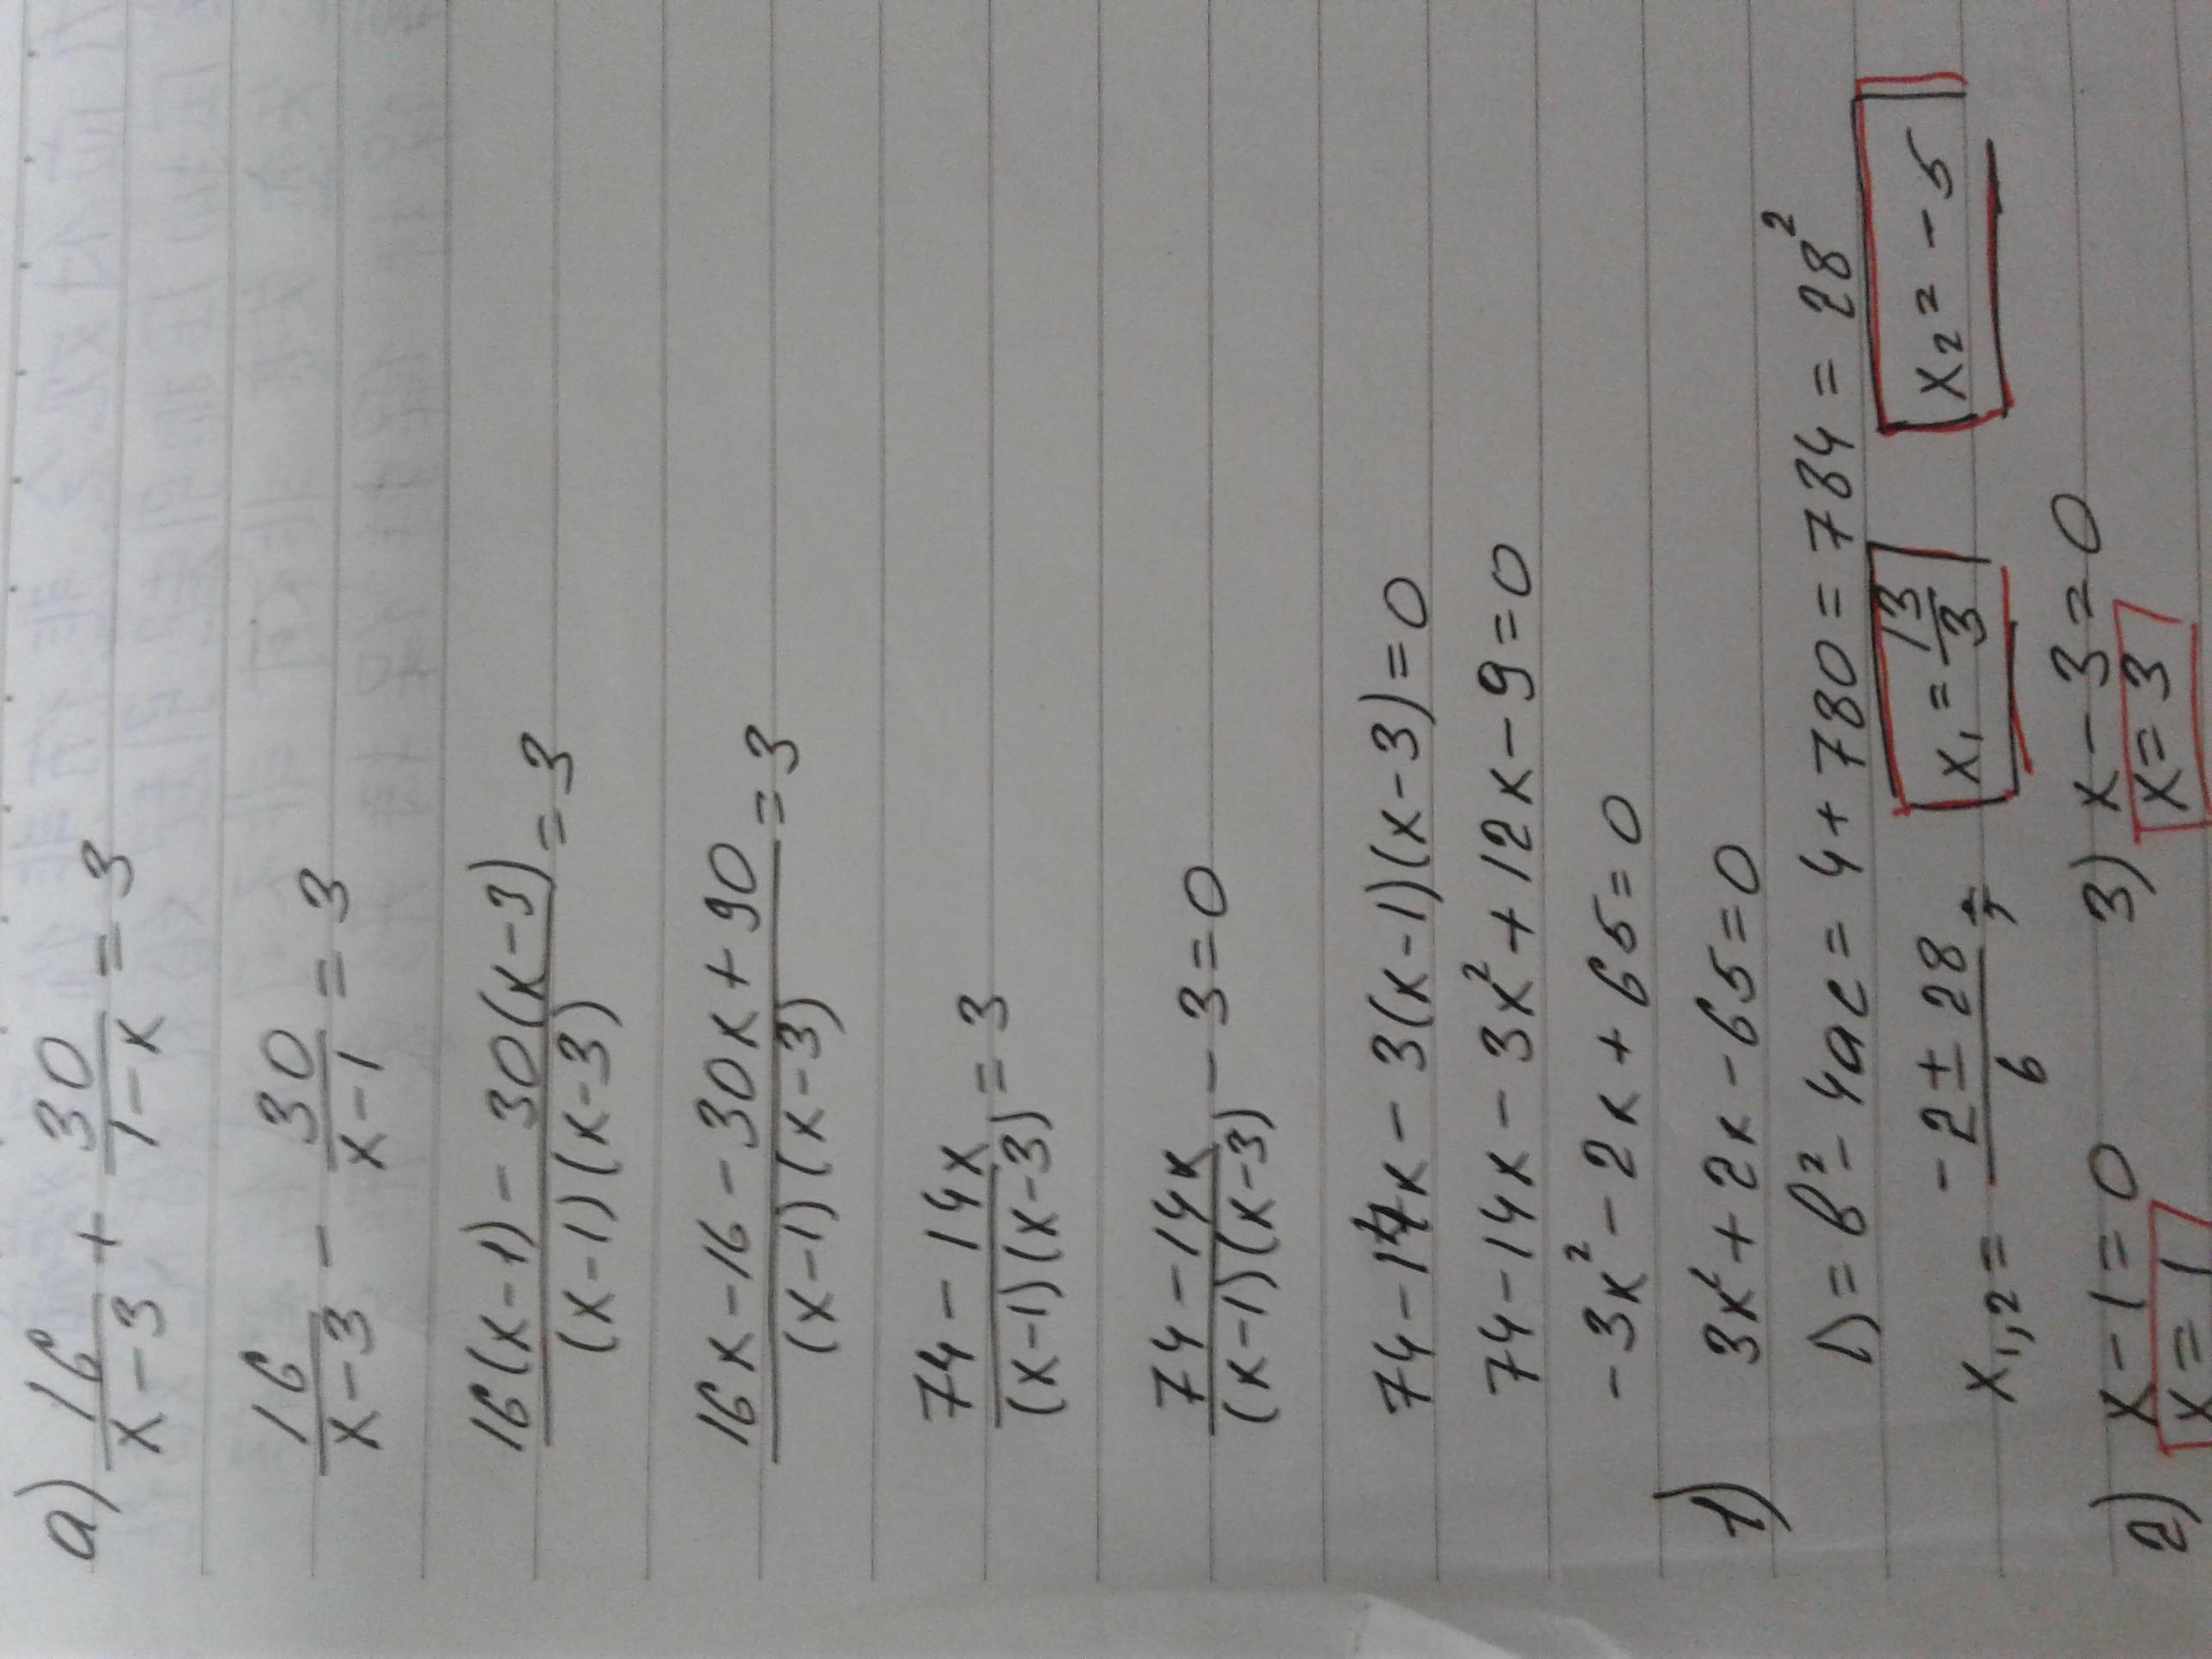 а) 16/(x-3) + 30/(1-x) = 3
16/(x-3) - 30/(x-1) = 3
(16(x-1) - 30(x-3))/((x-1)(x-3)) = 3
(16x-16-30x+90)/((x-1)(x-3)) = 3
(74-14x)/((x-1)(x-3)) = 3
(74-14x)/((x-1)(x-3)) - 3 = 0
74-14x-3(x-1)(x-3)=0
74-14x-3x²+12x-9=0
-3x²-2x+65=0
1) 3x²+2x-65=0
D=b²-4ac=4+780=784=28²
x₁,₂ = (-2±28)/6 x₁=13/3 x₂=-5
2) x-1=0 3) x-3=0
x=1 x=3